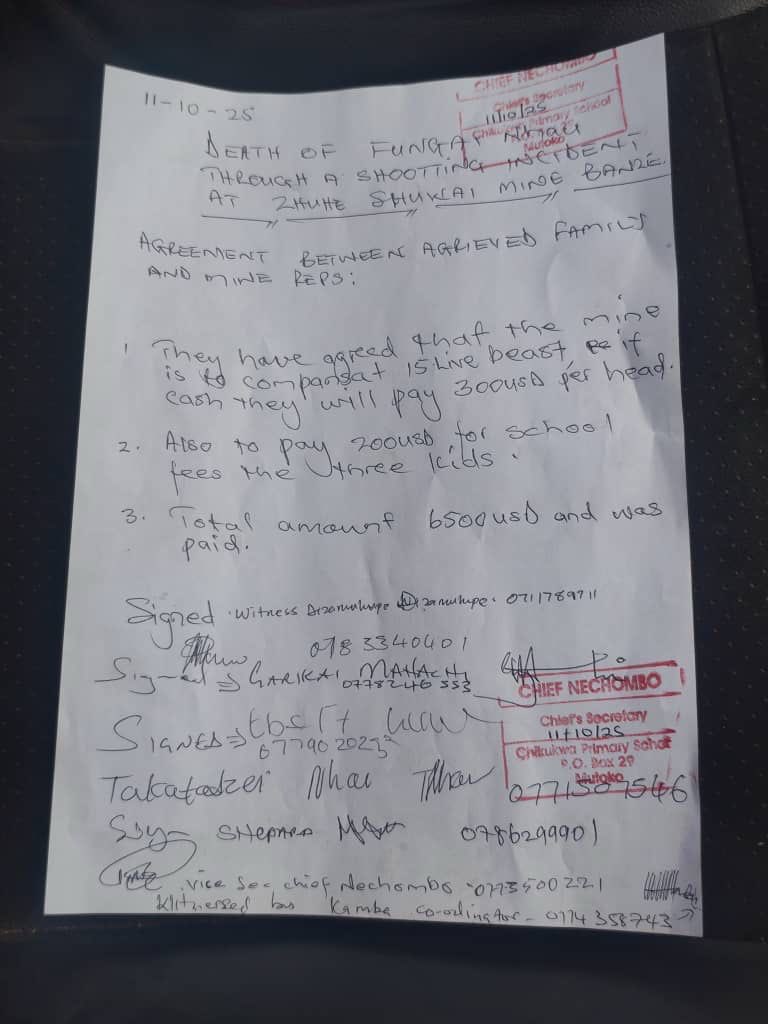 CHIEF NECHOMBO
11-10-25
Chief's Secretary
11/10/25
Chikukwa Primary School
Mutoko
DEATH OF FUNGAI NHAU
THROUGH A SHOOTTING INCIDENT
AT ZHUHE SHUKAI MINE BANZE.
AGREEMENT BETWEEN AGRIEVED FAMILY
AND MINE REPS:
1 They have agreed that the mine
is to compansat 15 Live beast, if
cash they will pay 300usd per head.
2. Also to pay 200usd for school
fees the three kids.
3. Total amount 6500usd and was
paid.
Signed. Witness 0711789711
0783340401
Signed → GARIKAI
0778246353
CHIEF NECHOMBO
Chief's Secretary
11/10/25
Chikukwa Primary School
P.O. Box 29
Mutoko
SIGNED →
Takatadzei Nhau
SHEPARD 0786299901
vice sec chief Nechombo 0773500221
Witnessed Kamba co-odinator - 0774358743